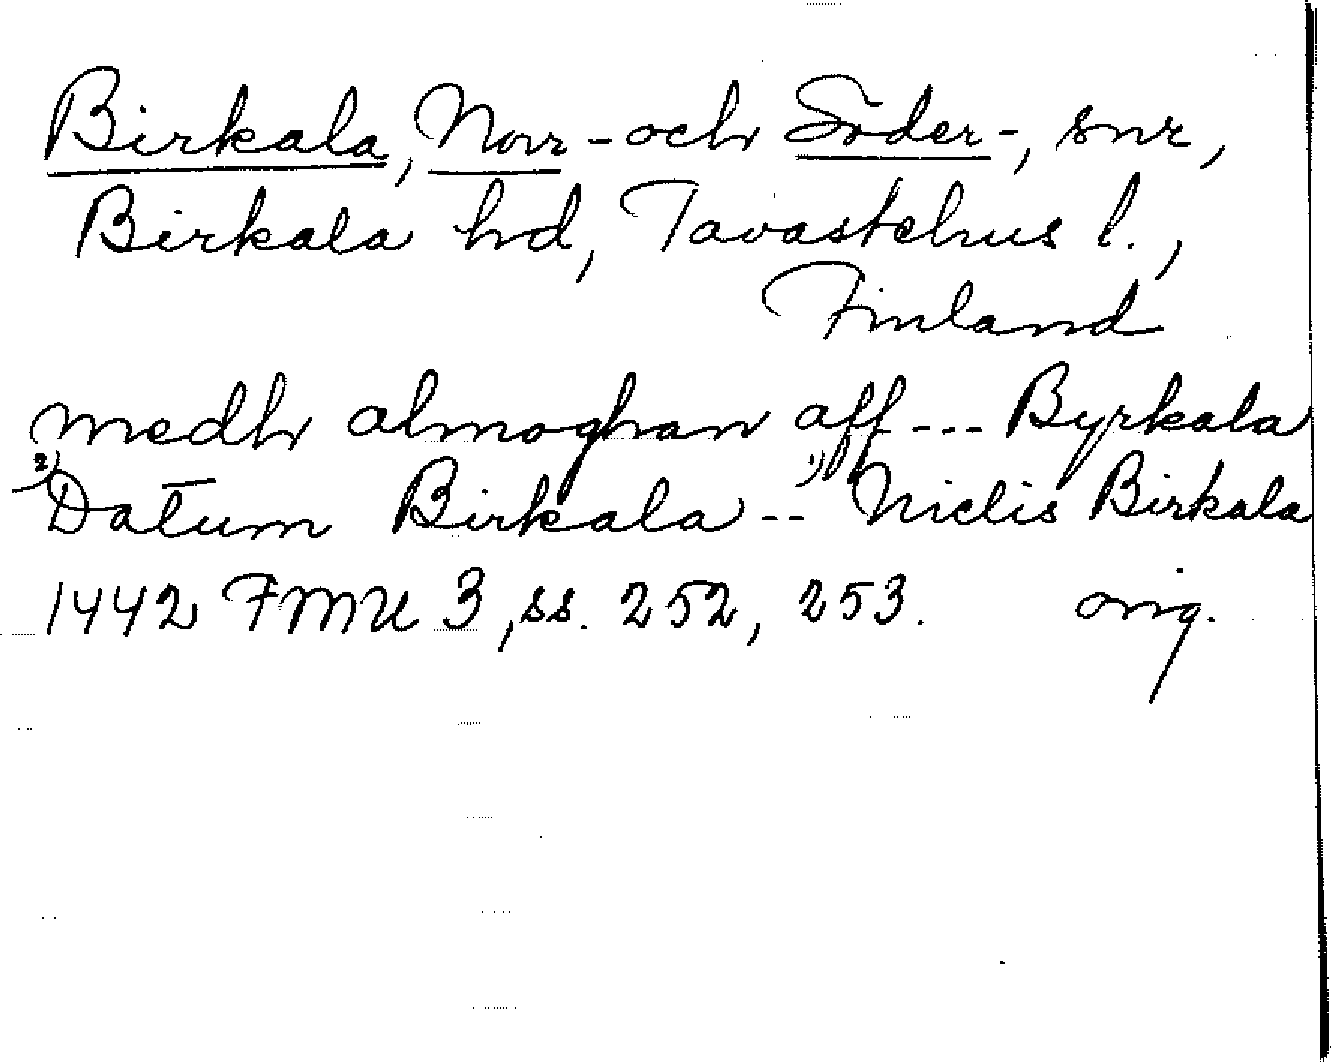 Birkala, Norr- och Söder-, snr,
Birkala hd, Tavastehus l.,
Finland
medh almoghan aff --- Byrkala
2) Datum Birkala -- 1) Niclis Birkala
1442 FMU 3, ss. 252, 253. orig.